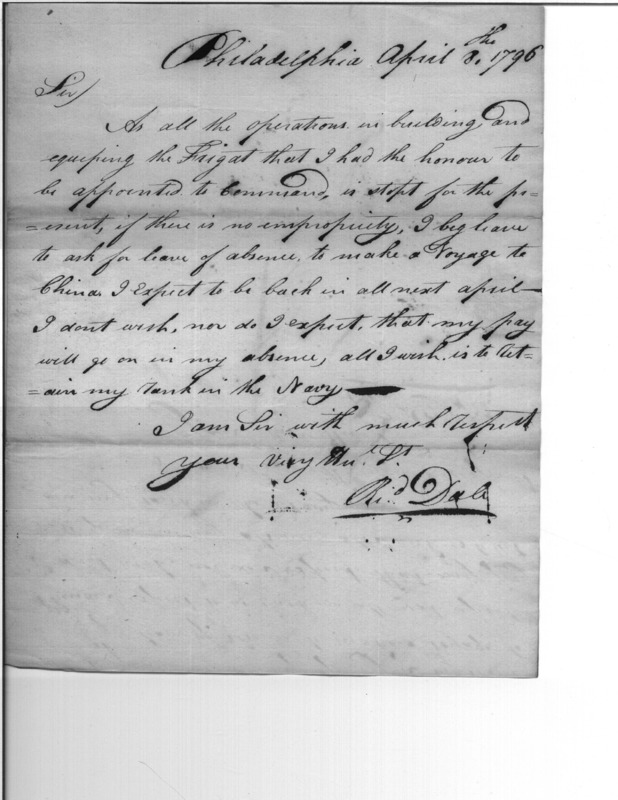 Philadelphia April 8.th 1796
Sir/
As all the operations in building and
equeping the Frigat that I had the honour to
be appointed to Command, is stopt for the pr=
=esent, if there is no empropriety, I beg leave
to ask for leave of absence, to make a Voyage to
China I Expect to be back in all next april—
I dont wish, nor do I expect, that my pay
will go on in my absence, all I wish is to ret=
=ain my rank in the Navy—
I am Sir with much respect
your very Hu.l St.
Ri.d Dale